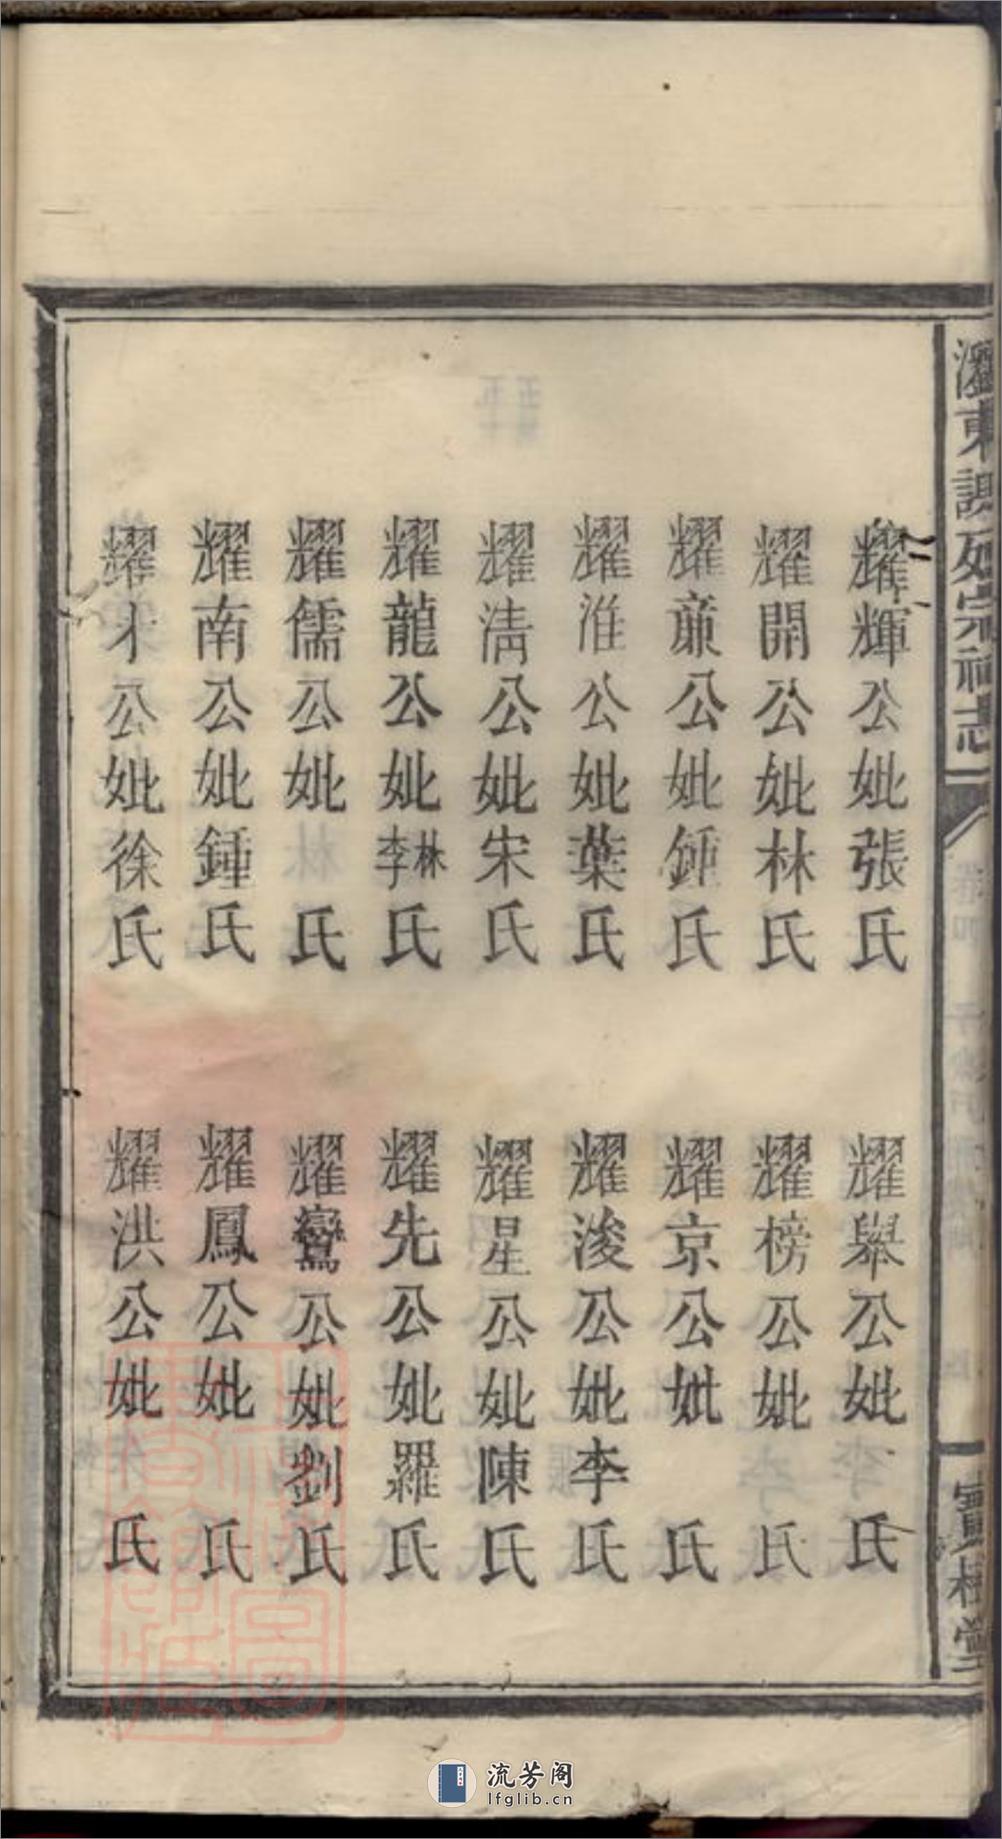 瀏東謝氏宗祠志
寶樹堂
耀輝公妣張氏
耀舉公妣氏
耀開公妣林氏
耀榜公妣氏
耀亷公妣鍾氏
耀京公妣氏
耀淮公妣葉氏
耀浚公妣李氏
耀清公妣宋氏
耀星公妣陳氏
耀龍公妣林李氏
耀先公妣羅氏
耀儒公妣氏
耀鸞公妣劉氏
耀南公妣鍾氏
耀鳳公妣氏
耀才公妣徐氏
耀洪公妣氏
流芳阁
lfglib.cn